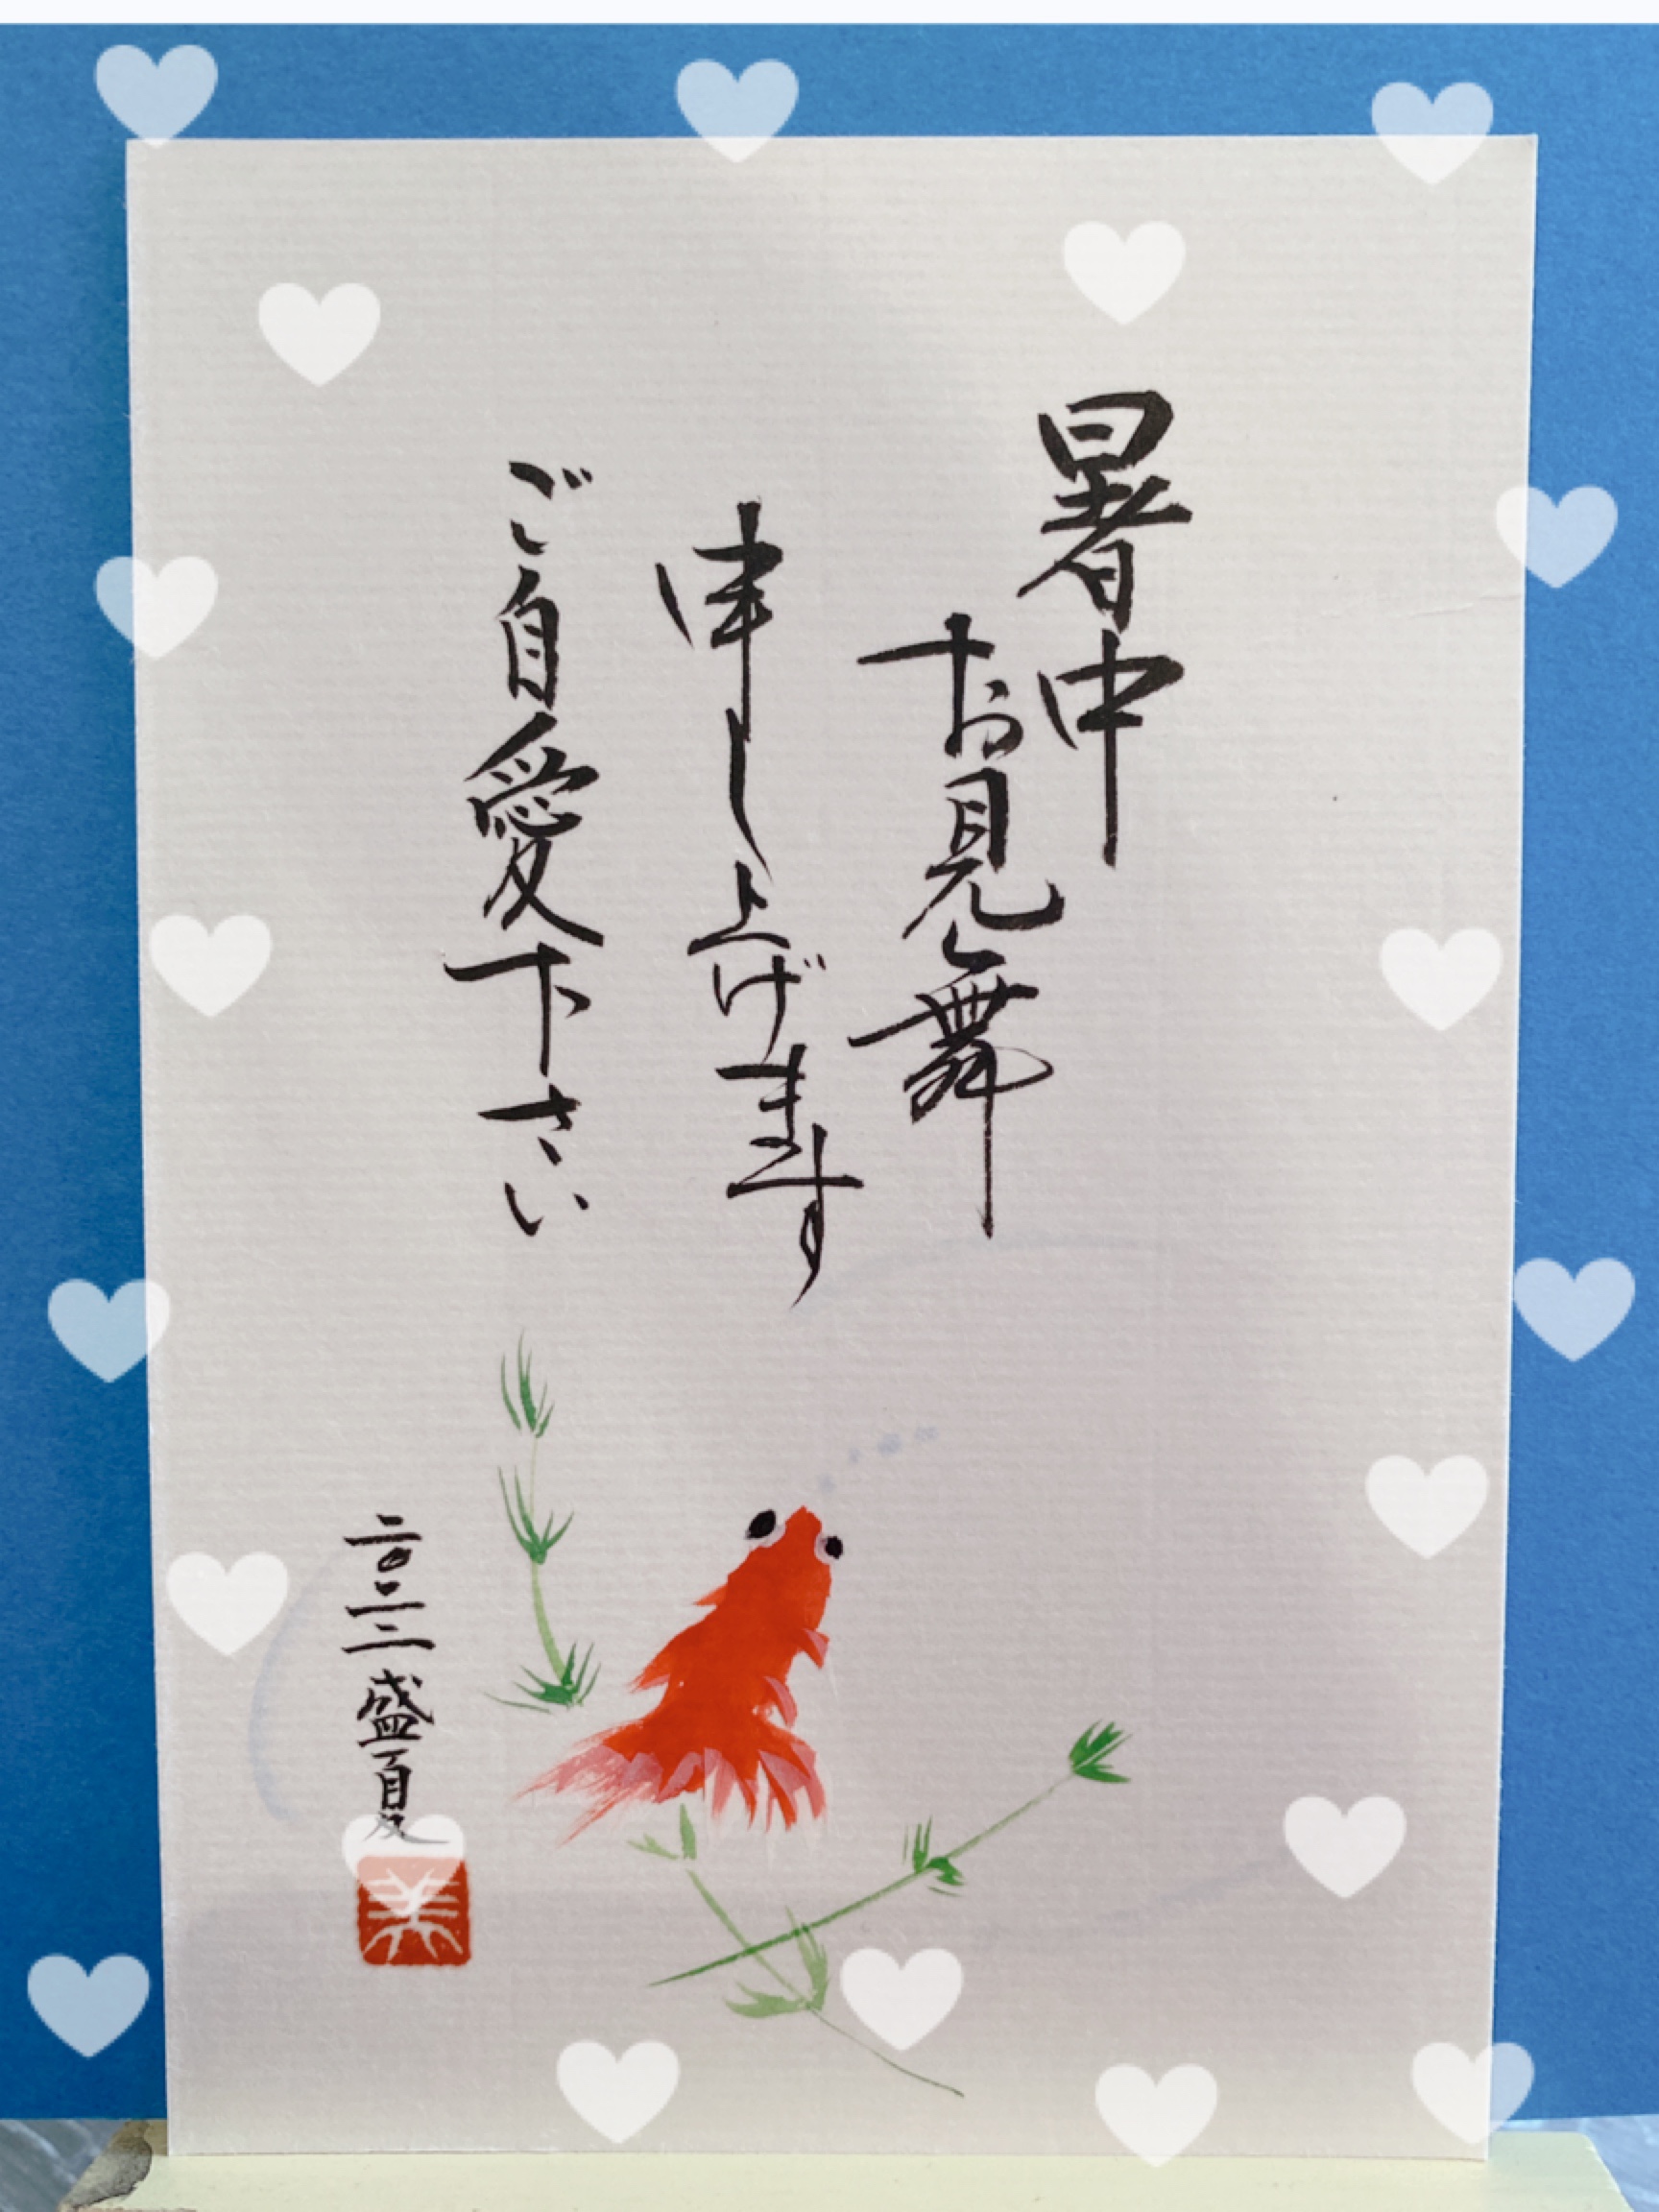 暑中
お見舞
申し上げます
ご自愛下さい
二〇二二盛夏
美